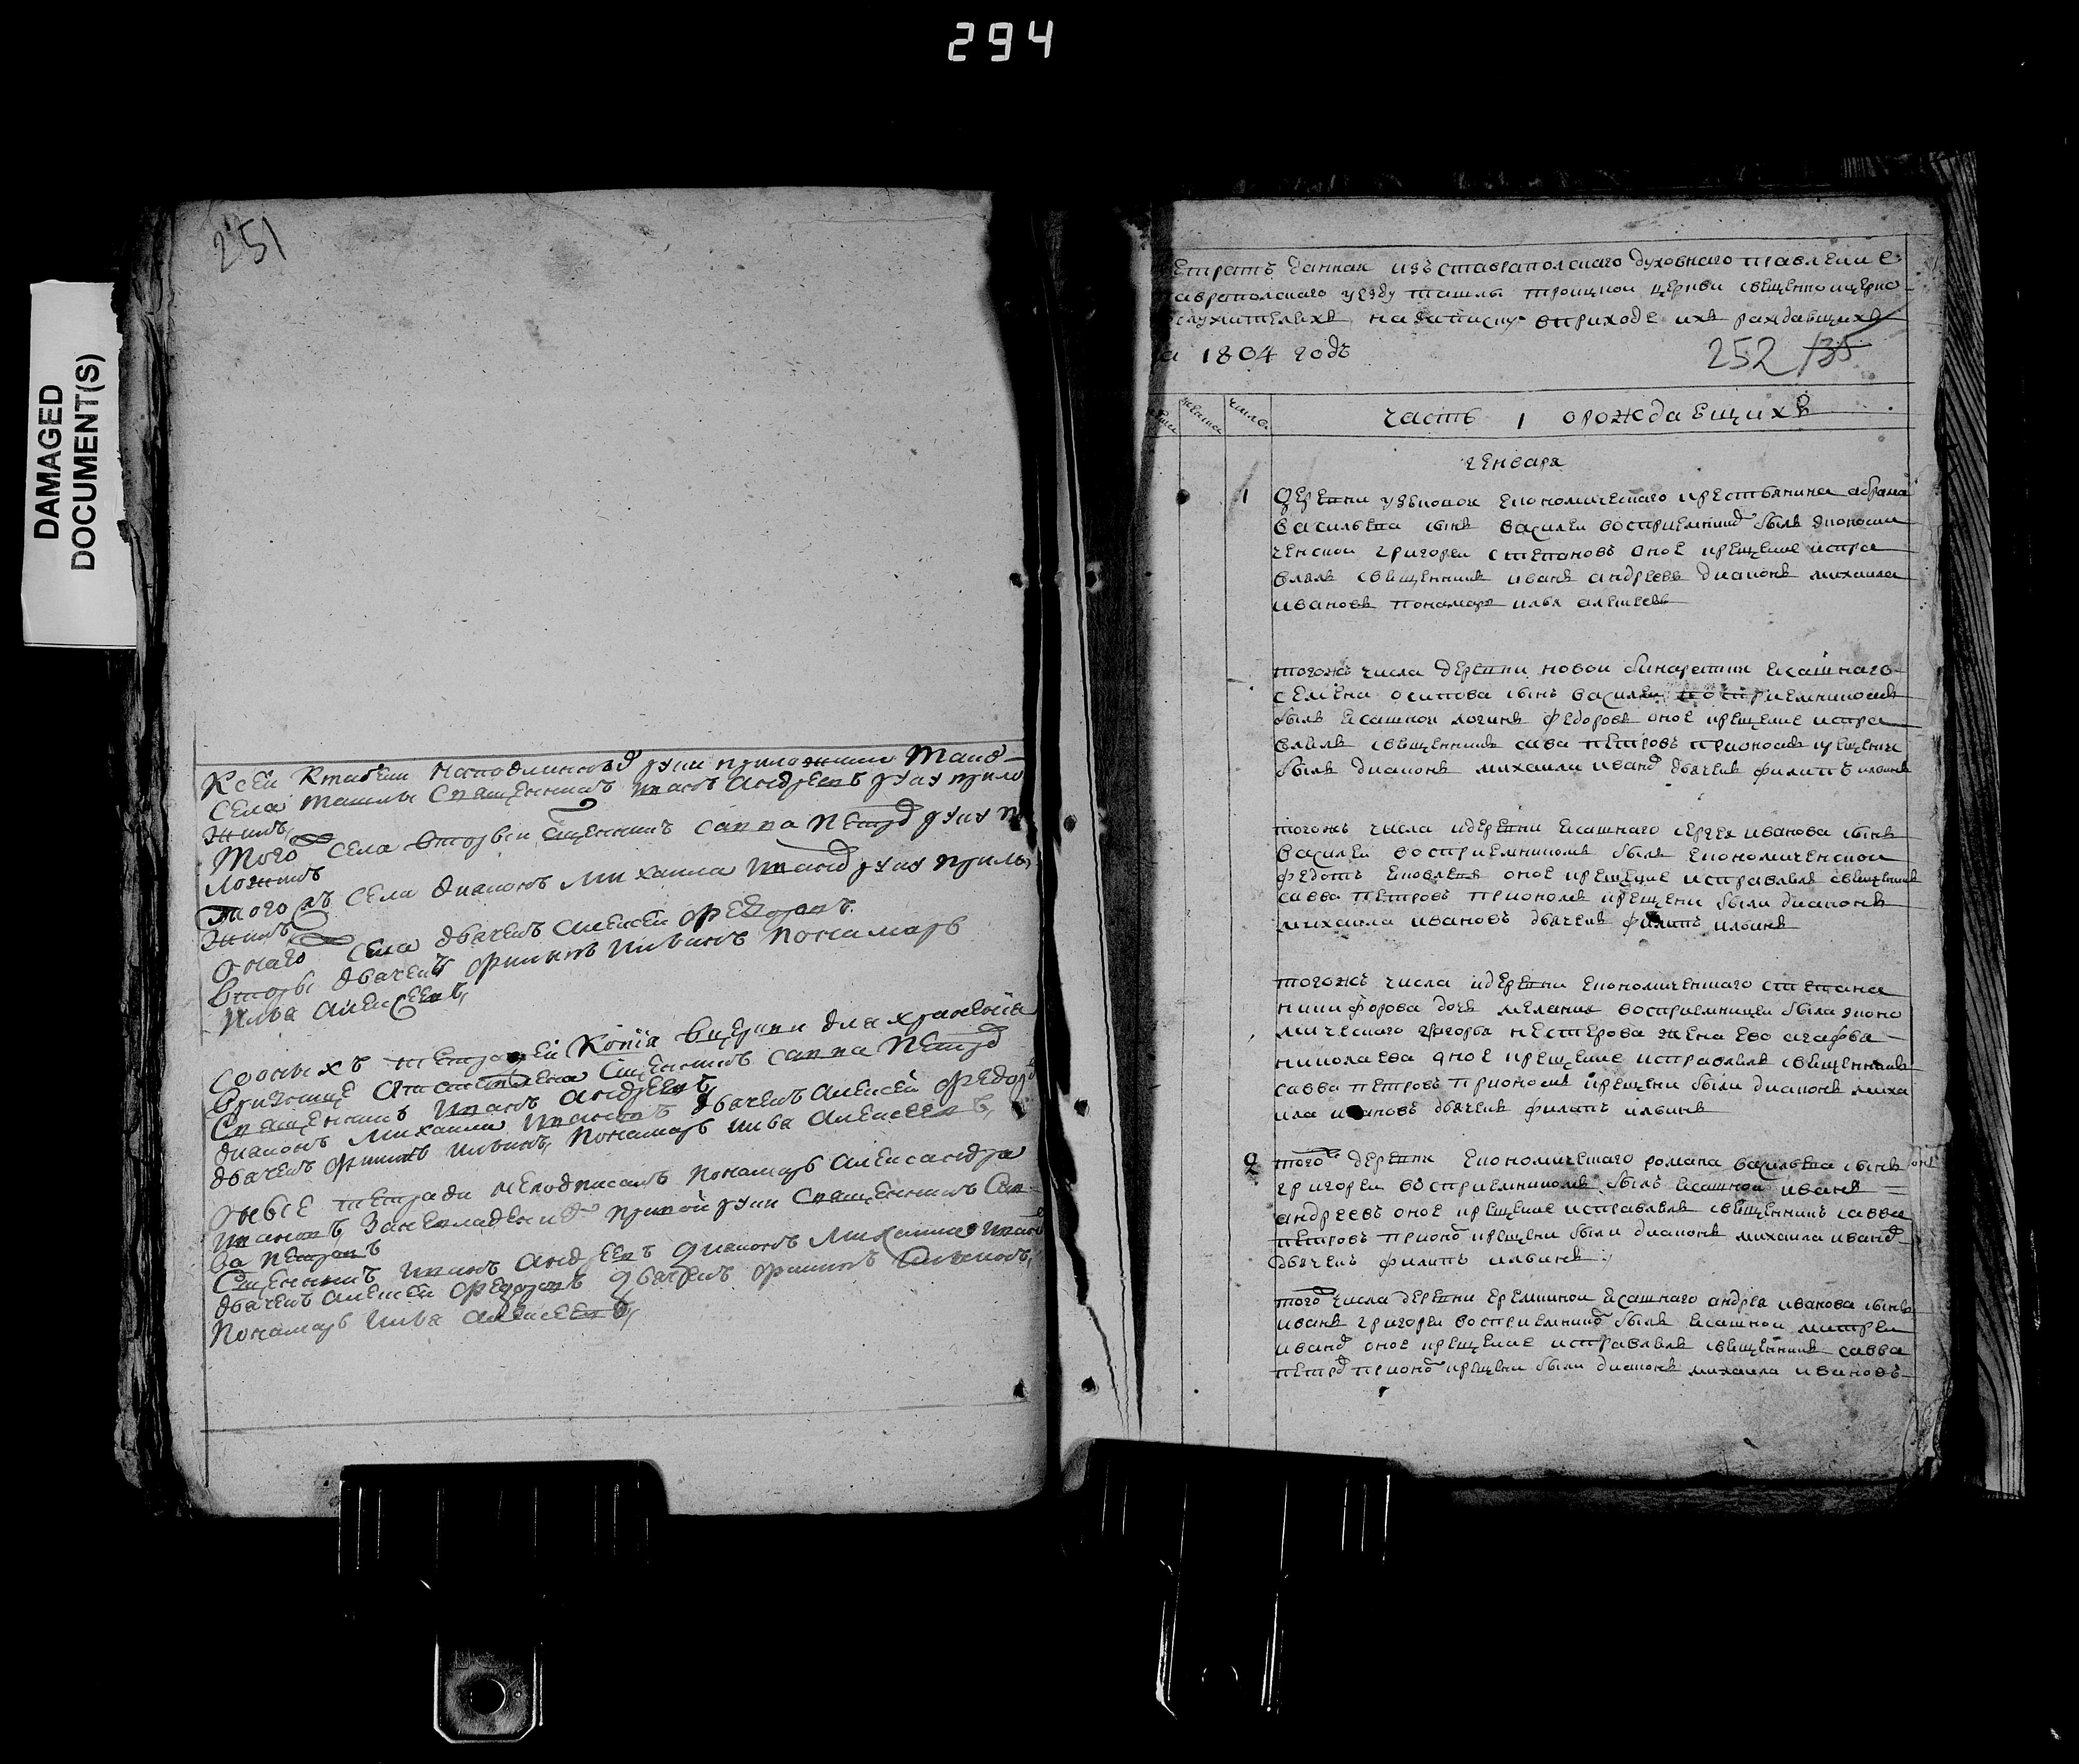 294
DAMAGED
DOCUMENT(S)
251
Ксей Ктабели наподлинной руки приложили Таиѡ
села ташлы Священникъ иванъ андреевъ руку прило
жилъ
Того села вторыи сщенникъ савва Петрѡ руку п
ложилъ
Того жъ села диаконъ михаила иванѡ руку прило
жилъ
Онаго села дьячекъ алексеи федоровъ
вторы дьячекъ филипъ ильинъ пономарь
илья алексеевъ
Соныхъ тетрадеи копїя вцеркви для хранения
вризнице оставлена сщенникъ савва Петрѡ
Священникъ иванъ андреевъ
диаконъ михаила ивановъ дьячекъ алексеи федорѡ
дьячекъ филипъ ильинъ, пономарь илья алексеевъ
оные тетради неподписалъ пономарь александра
ивановъ Священникъ Сав
ва петровъ
Сщенникъ иванъ андреевъ диаконъ михаила иванѡ
дьячекъ алексеи федоровъ дьячекъ филипъ ильинъ,
пономарь илья алексеевъ,
етрать данная изъ ставрапольскаго духовнаго правления с
аврапольскаго уезду ташлы троицкои церкви священно ицерко
служителихъ на записку вприходе ихъ раждающихъ
а 1804 годъ
252 135
числа
часть 1 орождаещихъ
генваря
1 Деревни узьюкои економическаго крестьянина абрама
васильева сынъ василеи восприемникѡ былъ экономи
ческои григореи степановъ оное крещение испра
влялъ священникъ иванъ андреевъ диаконъ михаила
ивановъ пономарь илья алексеевъ
тогожъ числа деревни новои бинаратки ясашнаго
семена осипова сынъ василеи восприемникомъ
былъ ясашнои логинъ федоровъ оное крещение испра
влялъ священникъ сава петровъ приономъ крещении
былъ диаконъ михаили иванѡ дьячекъ филипъ ильинъ
тогожъ числа идеревни ясашнаго сергея иванова сынъ
василеи восприемникомъ былъ економическои
федотъ яковлевъ оное крещение исправлялъ священникъ
савва петровъ приономъ крещени были диаконъ
михаила ивановъ дьячекъ филипъ ильинъ
тогожъ числа идеревни економическаго степана
никифорова дочь мелания восприемницеи была эконо
мическаго григорья нестерова жена ево агафья
николаева оное крещение исправлялъ священникъ
савва петровъ приономъ крещени были диаконъ миха
ила ивановъ дьячекъ филипъ ильинъ
2 тогѡ деревни економическаго романа васильева сынъ
григореи восприемникомъ былъ ясашнои иванъ
андреевъ оное крещение исправлялъ священникъ савва
петровъ прионѡ крещени были диаконъ михаила иванѡ
дьячекъ филипъ ильинъ
тогѡ числа деревни еремкинои ясашнаго андрея иванова сынъ
иванъ григореи восприемникѡ былъ ясашнои митреи
иванѡ оное крещение исправлялъ священникъ савва
петрѡ прионѡ крещени были диаконъ михаила ивановъ